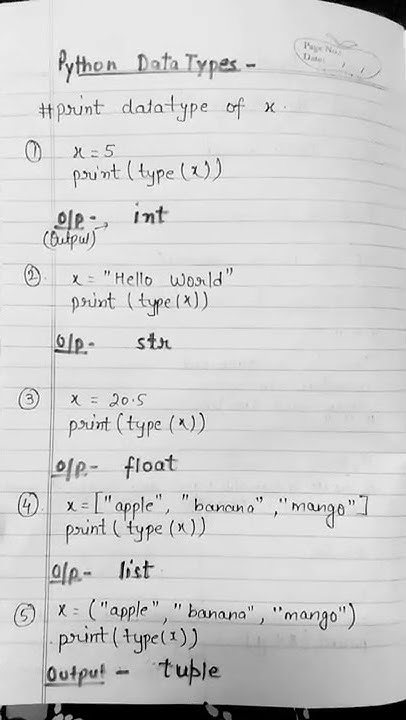 Page No.:
Date: / /
Python Data Types -
#print datatype of x.
① x = 5
print(type(x))
O/p - int
(Output)
② x = "Hello World"
print (type(x))
O/p - str
③ x = 20.5
print (type(x))
O/p - float
④ x = ["apple", "banana", "mango"]
print (type (x))
O/p - list
⑤ x = ("apple", "banana", "mango")
print (type(x))
Output - tuple